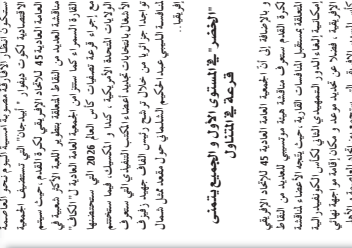 ستكون أنظار الأفارقة مصوبة أمسية اليوم نحو العاصمة
الاقتصادية لكوت ديفوار "أبيدجان التي تستضيف الجمعية
العامة العادية 45 للاتحاد الإفريقي لكرة القدم، حيث سيتم
مناقشة العديد من النقاط المتعلقة بتطوير اللعبة الأكثر شعبية في
القارة السمراء كما ستبرز من الجمعية العامة لـ "الكاف"
مع إجراء قرعة تصفيات كأس العالم 2026 التي ستحتضنها
الولايات المتحدة الأمريكية، كندا والمكسيك، فيما ستختتم
الأشغال بانتخابات تجديد أعضاء المكتب التنفيذي التي ستعرف
تواجد جزائريا من خلال ترشح رئيس الفاف جهيد زفيزف
لمنافسة الليبي عبد الحكيم الشلماني حول مقعد ممثل شمال
إفريقيا..
"الخضر" في المستوى الأول و الجميع يتمنى
قرعة في المتناول
وبالإضافة إلى أن الجمعية العامة العادية 45 للاتحاد الإفريقي
لكرة القدم ستعرف مناقشة هيئة موتسيبي للعديد من النقاط
المتعلقة بمستقبل المنافسات القارية، حيث يتجه الأعضاء لمناقشة
إمكانية إلغاء الدور التمهيدي الثاني لكأس الكونفيدرالية
الإفريقية، فضلا عن تحديد موعد و مكان إقامة مواجهة نهائي